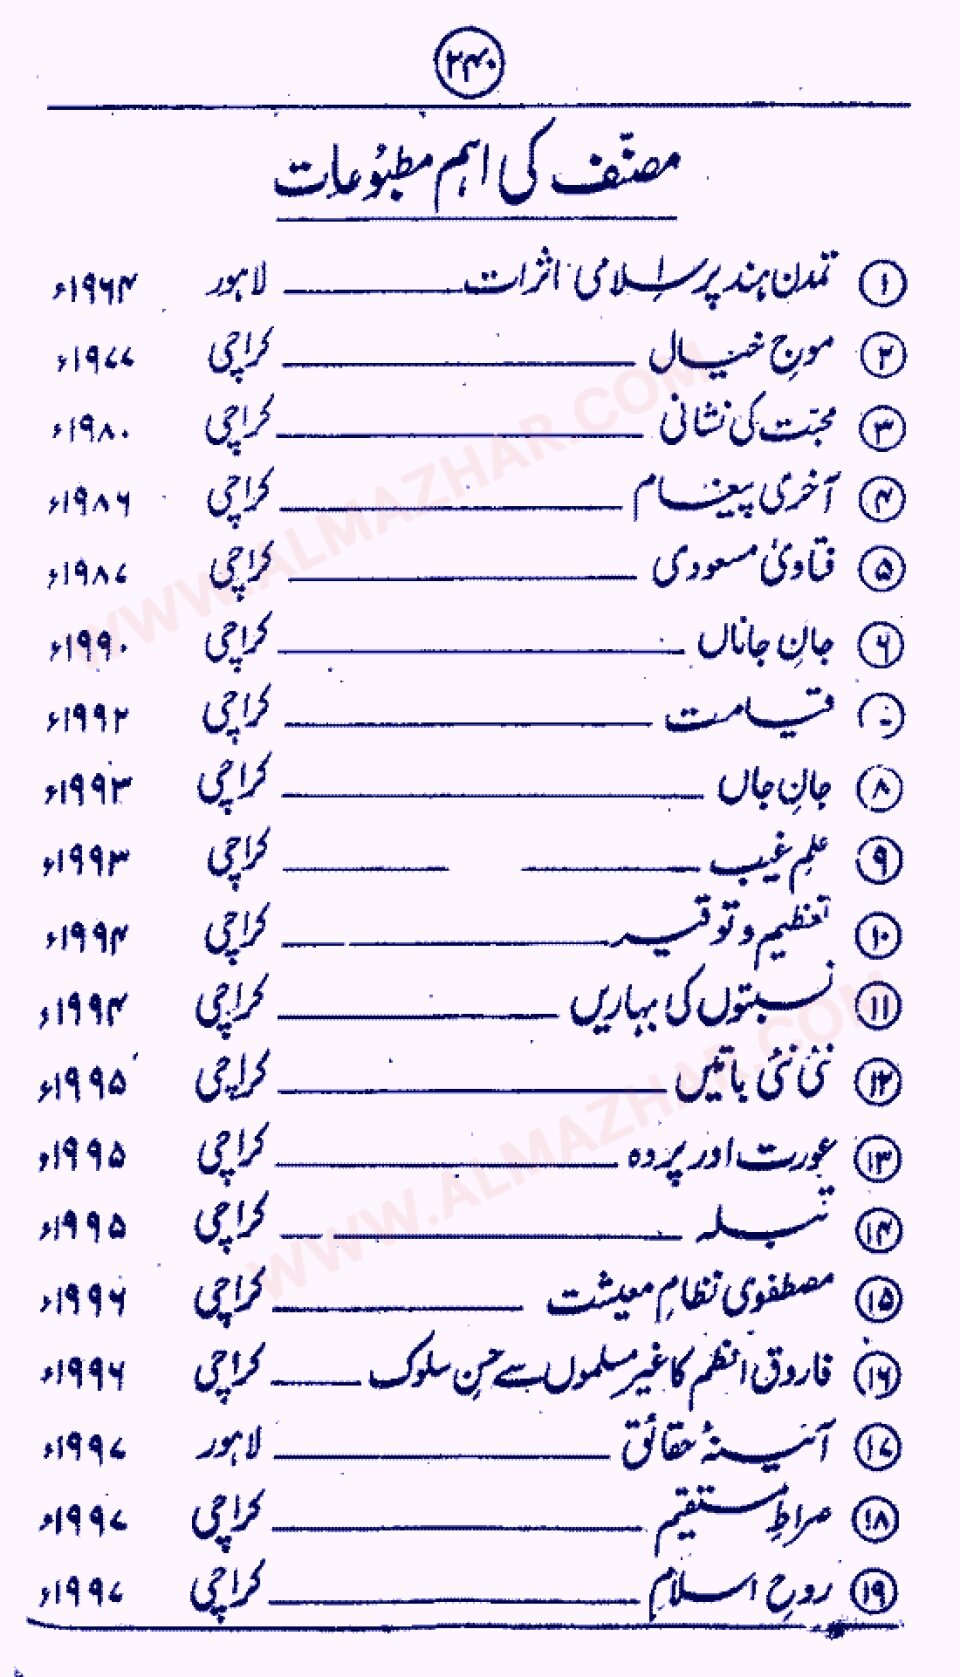 ۲۴۰
مصنّف کی اہم مطبُوعات
۱ تمدن ہند پر اسلامی اثرات لاہور ۱۹۶۴ء
۲ موجِ خیال کراچی ۱۹۷۷ء
۳ محبّت کی نشانی کراچی ۱۹۸۰ء
۴ آخری پیغام کراچی ۱۹۸۶ء
۵ فتاویٰ مسعودی کراچی ۱۹۸۷ء
۶ جانِ جاناں کراچی ۱۹۹۰ء
۷ قیامت کراچی ۱۹۹۲ء
۸ جانِ جاں کراچی ۱۹۹۳ء
۹ علمِ غیب کراچی ۱۹۹۳ء
۱۰ تعظیم و توقیر کراچی ۱۹۹۴ء
۱۱ نسبتوں کی بہاریں کراچی ۱۹۹۴ء
۱۲ نئی نئی باتیں کراچی ۱۹۹۵ء
۱۳ عورت اور پردہ کراچی ۱۹۹۵ء
۱۴ قبلہ کراچی ۱۹۹۵ء
۱۵ مصطفوی نظامِ معیشت کراچی ۱۹۹۶ء
۱۶ فاروق اعظم کا غیر مسلموں سے حسنِ سلوک کراچی ۱۹۹۶ء
۱۷ آئینۂ حقائق لاہور ۱۹۹۷ء
۱۸ صراطِ مستقیم کراچی ۱۹۹۷ء
۱۹ روحِ اسلام کراچی ۱۹۹۷ء
WWW.ALMAZHAR.COM
WWW.ALMAZHAR.COM